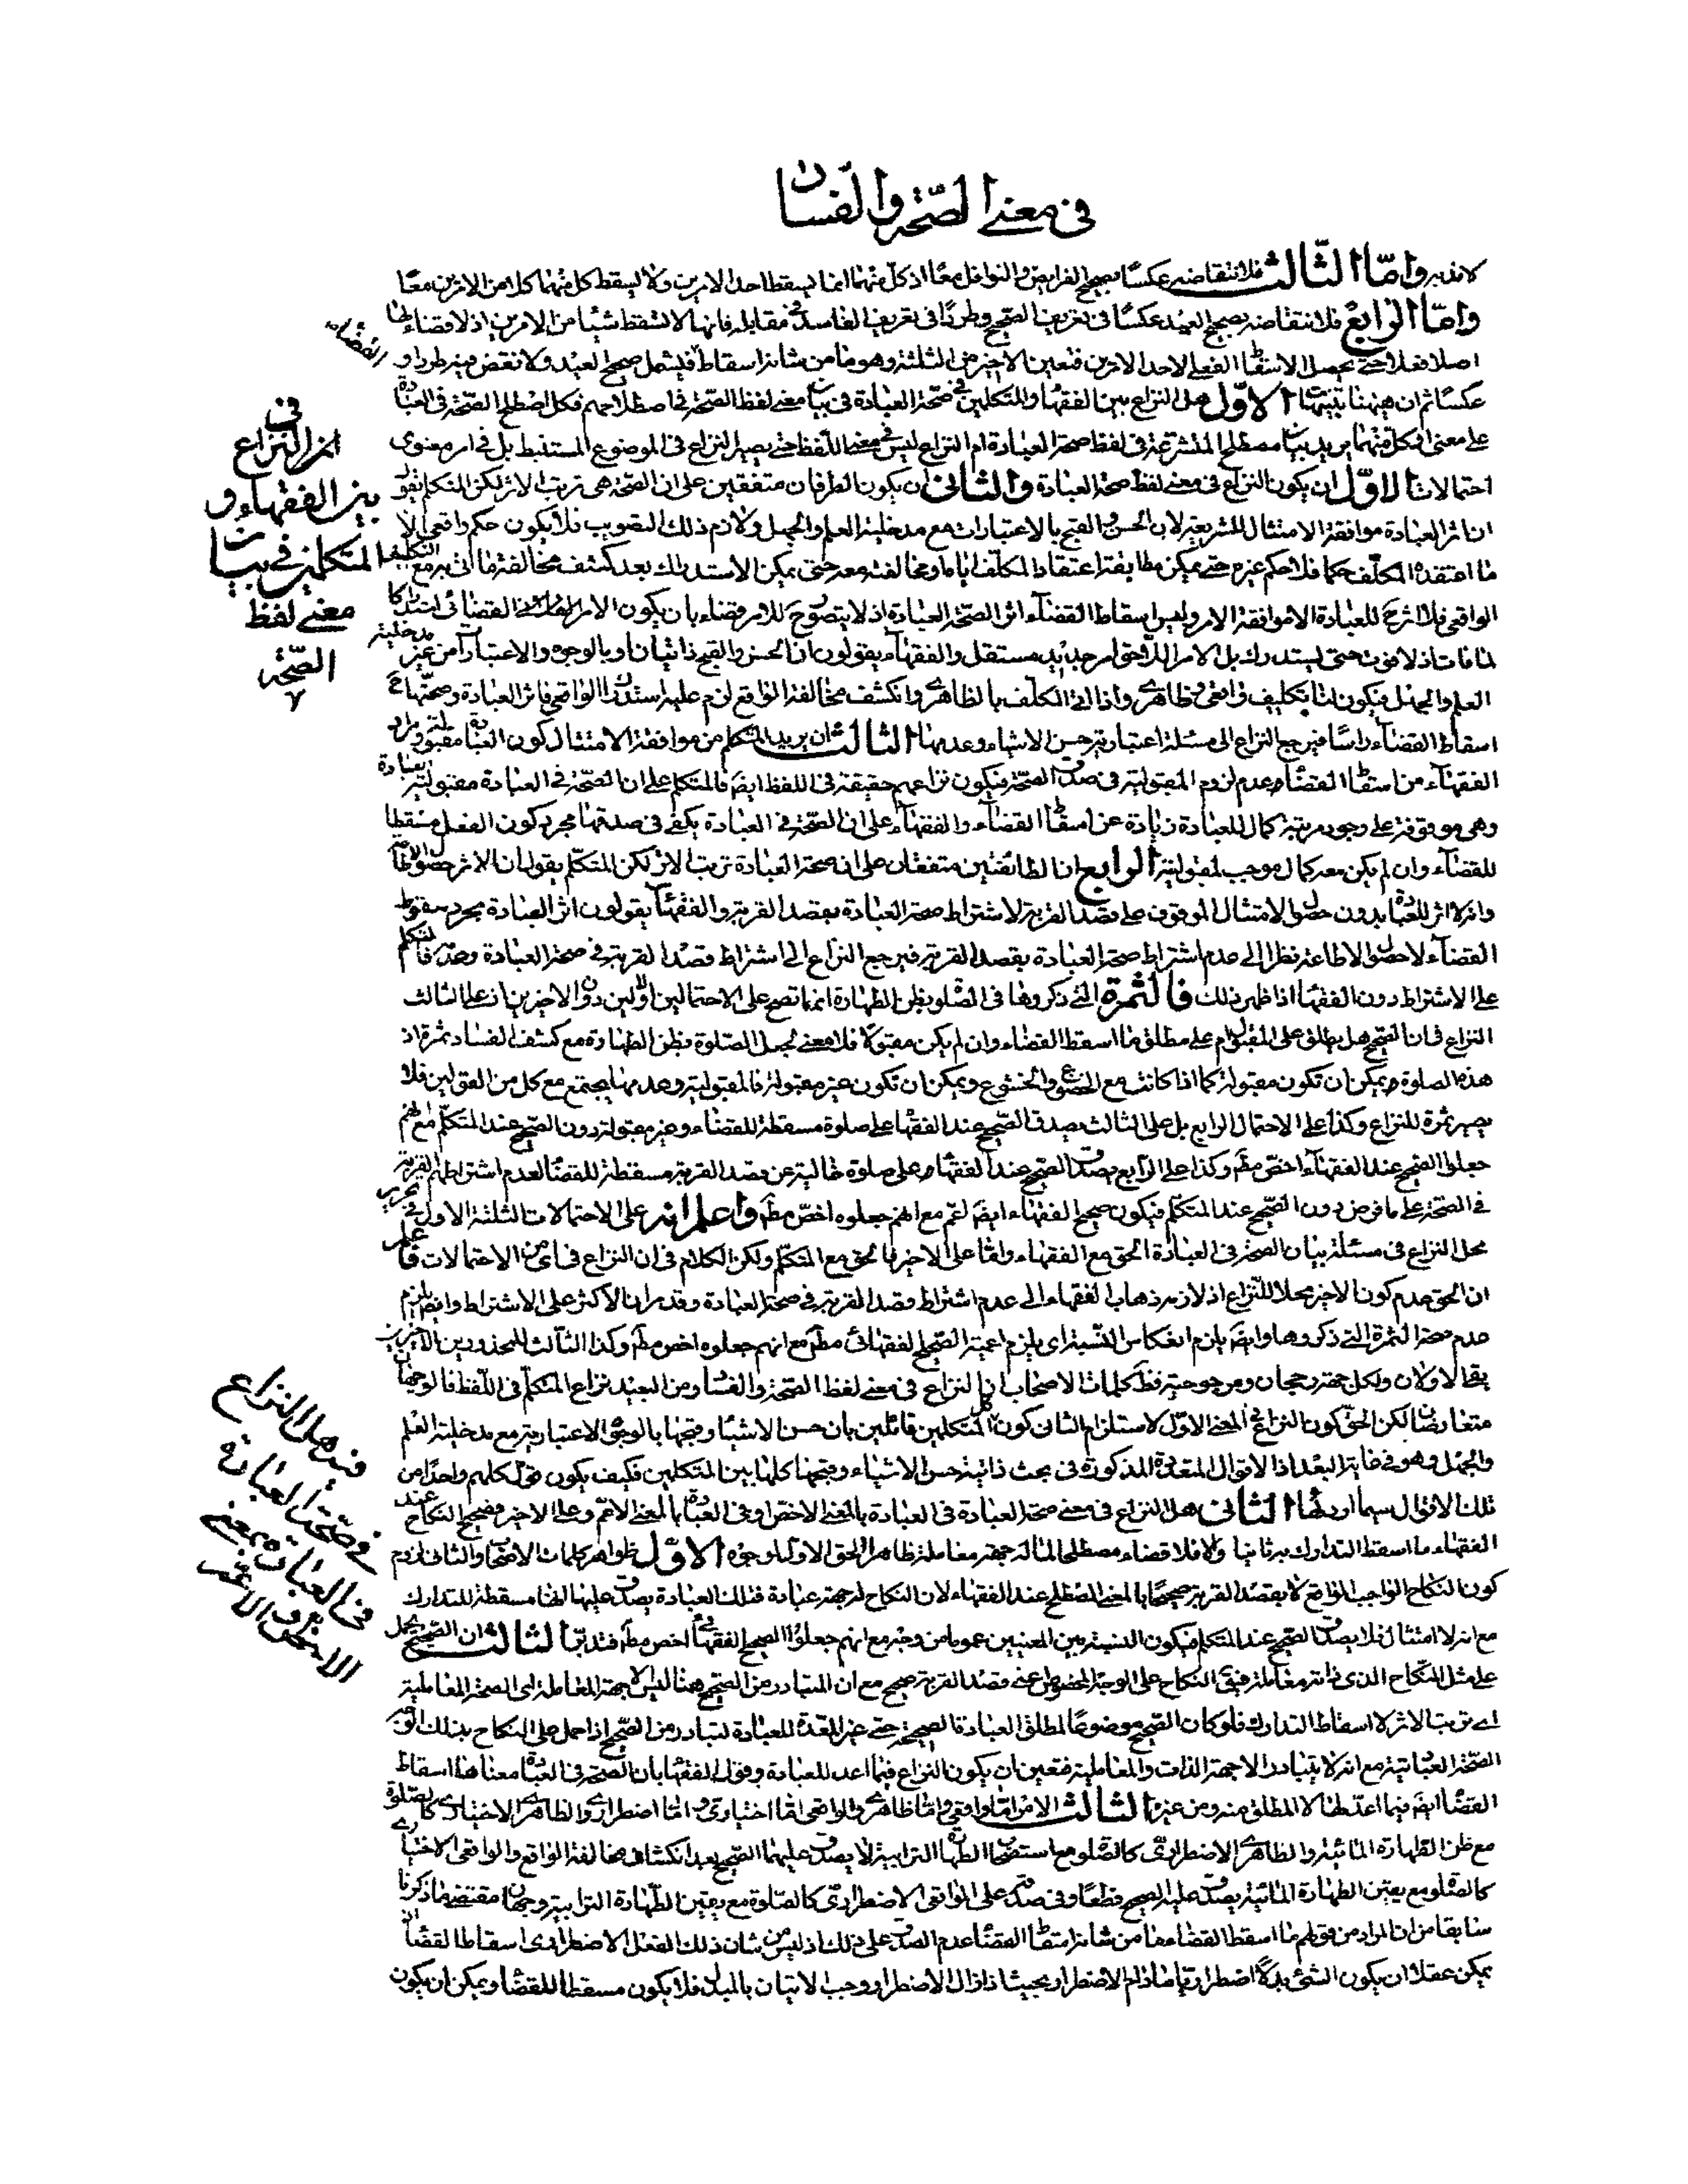 في معنى الصّحّة والفساد
لانه بره وامّا الثالث فلانتقاضه عكسًا بصحيح الفرايض والنوافل معًا اذ كلّ منهما انما يسقط احد الامرين ولا يسقط كل منهما كلا من الامرين معًا
وامّا الرابع فلانتقاضه بصحيح العيد عكسًا في تعريف الصّحيح وطردًا في تعريف الفاسد في مقابله فانها لا تسقط شيئا من الامرين اذ لا قضاء لها
اصلا فضلا حتى يحصل الاسقاط الفعلي لاحد الامرين فتعين الاخير من الثلثة وهو ما من شانه اسقاط القضاء فيشمل صحيح العيد ولا نقض فيه طردا و
عكسًا ثم ان ههنا تنبيهات الاوّل هل النزاع بين الفقهاء والمتكلمين في صحّة العبادة في بيان معنى لفظ الصّحة في اصطلاحهم فكل اصطلح الصّحة في العبادة
على معنى او كل منهما يريد بيان مصطلح المتشرعة في لفظ صحة العبادة ام النزاع ليس في معنى اللّفظ حتى يصير النزاع في الموضوع المستنبط بل في امر معنوى
احتمالات الاوّل ان يكون النزاع في معنى لفظ صحة العبادة والثانى ان يكون الطرفان متفقين على ان الصّحة هى ترتب الاثر لكن المتكلم يقول
ان اثر العبادة موافقة الامتثال للشريعة لان الحسن والقبح بالاعتبارات مع مدخلية العلم والجهل ولازم ذلك التصويب فلا يكون حكم واقعى الا
ما اعتقده المكلّف حكما فلا حكم غيره حتى يمكن مطابقة اعتقاد المكلّف اياه او مخالفته معه حتى يمكن الاستدراك بعد كشف مخالفة ما اتى به مع التكليف
الواقعى فلا اثر ح للعبادة الا موافقة الامر وليس اسقاط القضآء اثر الصّحة العبادة اذ لا يتصوّر ح للامر قضاء بان يكون الامر القضائى استدراكا
لما فات اذ لا فوت حتى يستدرك بل الامر اللاحق امر جديد مستقل والفقهآء يقولون ان الحسن والقبح ذاتيان او بالوجوه والاعتبارات من غير مدخلية
العلم والجهل فيكون لنا تكليف واقعى وظاهرى واذا اتى المكلّف بالظاهرى وانكشف مخالفة الواقع لزم عليه استدراك الواقعى فاثر العبادة وصحّتها ح
اسقاط القضآء راسًا فيرجع النزاع الى مسئلة اعتبارية حسن الاشياء وعدمها الثالث ان يريد المتكلم من موافقة الامتثال كون العبادة مقبولة ومراد
الفقهآء من اسقاط القضاء عدم لزوم المقبولية في صدق الصّحة فيكون نزاعهم حقيقة في اللفظ ايضَ فالمتكلم على ان الصّحة في العبادة مقبولية العبادة
وهى موقوفة على وجود مرتبة كمال للعبادة زيادة عن اسقاط القضآء والفقهآء على ان الصّحة في العبادة يكفى في صدقها مجرد كون الفعل مسقطا
للقضآء وان لم يكن معه كمال موجب لمقبوليته الرابع ان الطائفتين متفقتان على ان صحة العبادة ترتب الاثر لكن المتكلّم يقول ان الاثر حصول الاطاعة
وانه لا اثر للعبادة بدون حصول الامتثال الموقوف على قصد القربة لاشتراط صحة العبادة بقصد القربة والفقهآء يقولون اثر العبادة مجرد سقوط
القضآء لا حصول الاطاعة نظرا الى عدم اشتراط صحة العبادة بقصد القربة فيرجع النزاع الى اشتراط قصد القربة في صحة العبادة وعدمه فالمتكلم
على الاشتراط دون الفقهاء اذا ظهر ذلك فالثمرة التى ذكروها في الصّلوة بظن الطهارة انما تصح على الاحتمالين الاوّلين دون الاخيرين اذ على الثالث
النزاع في ان الصّحيح هل يطلق على المقبول ام على مطلق ما اسقط القضاء وان لم يكن مقبولا فلا معنى لجعل الصّلوة بظن الطهارة مع كشف الفساد ثمرة اذ
هذه الصلوة يمكن ان تكون مقبولة كما اذا كانت مع الخضوع والخشوع ويمكن ان تكون غير مقبولة فالمقبولية وعدمها يجتمع مع كل من القولين فلا
يصير ثمرة للنزاع وكذا على الاحتمال الرابع بل على الثالث يصدق الصّحيح عند الفقهاء على صلوة مسقطة للقضاء وغير مقبولة دون الصّحيح عند المتكلّم مع انهم
جعلوا الصّحيح عند الفقهآء اخصّ مطَ وكذا على الرّابع يصدق الصّحيح عند الفقهاء على صلوة خالية عن قصد القربة مسقطة للقضاء لعدم اشتراطهم القربة
في الصّحة على ما فرض دون الصّحيح عند المتكلّم فيكون صحيح الفقهاء ايضَ اعَم مع انهم جعلوه اخصّ مطَ واعلم انه على الاحتمالات الثلثة الاول في تحرير
محل النزاع في مسئلة بيان الصّحة في العبادة الحق مع الفقهاء وامّا على الاخير فالحق مع المتكلّم ولكن الكلام في ان النزاع في اى من الاحتمالات فاعلم
ان الحق عدم كون الاخير محلا للنّزاع اذ لازمه ذهاب الفقهاء الى عدم اشتراط قصد القربة في صحة العبادة وقد مر ان الاكثر على الاشتراط وايضَ يلزم
عدم صحة الثمرة التى ذكروها وايضَ يلزم انعكاس النّسبة اى يلزم اعمية الصّحيح الفقهائى مطَ مع انهم جعلوه اخص مطَ وكذا الثّالث للمحذورين الاخيرين
بقى الاولان ولكل جهة رجحان ومرجوحية فظَ كلمات الاصحاب ان النزاع في معنى لفظ الصّحة والفساد ومن البعيد نزاع المتكلّم في اللّفظ فالوجهان
متعارضان لكن الحقّ كون النزاع في المعنى الاوّل لاستلزام الثانى كون كل المتكلمين قائلين بان حسن الاشياء وقبحها بالوجوه الاعتبارية مع مدخلية العلم
والجهل وهو في غاية البعد اذ الاقوال المتعددة المذكورة في بحث ذاتية حسن الاشياء وقبحها كلها بين المتكلمين فكيف يكون قول كلهم واحدا من
تلك الاقوال سيما اردئها الثانى هل النزاع في معنى صحة العبادة في العبادة بالمعنى الاخص او في العبادة بالمعنى الاعّم وعلى الاخير فصحيح النكاح عند
الفقهاء ما اسقط التدارك به ثانيا ولا فلا قضاء مصطلحا لما له جهة معاملة ظاهرا الحق الاول لوجوه الاوّل ظواهر كلمات الاصحاب والثانى لزوم
كون النكاح الواجب الواقع لا بقصد القربة صحيحًا بالمعنى المصطلح عند الفقهاء لان النكاح له جهة عبادة فتلك العبادة يصدق عليها انها مسقطة للتدارك
مع انه لا امتثال فلا يصدق الصّحيح عند المتكلم فيكون النسبة بين المعنيين عموما من وجه مع انهم جعلوا الصحيح الفقهائى اخص مطَ فتدبّر الثالث ان الصّحيح يحمل
على مثل النّكاح الذى ذاته معاملة فيقَ النكاح على الوجه المخصوص من غير قصد القربة صحيح مع ان المتبادر من الصّحيح هنا ليس الا جهة المعاملة اى الصّحة المعاملية
اى ترتب الاثر لا اسقاط التدارك فلو كان الصّحيح موضوعًا لمطلق العبادة الصحيحة حتى غير المعّدة للعبادة لتبادر من الصّحيح اذا حمل على النكاح بذلك الوجه
الصّحة العباديّة مع انه لا يتبادر الا جهة الذات والمعاملية فتعين ان يكون النزاع فيما اعد للعبادة وقول الفقهاء بان الصّحة في العبادة معناها اسقاط
القضاء ايضَ فيما اعدّ لها لا المطلق منه ومن غيره الثالث الامر امّا واقعى وامّا ظاهرى والواقعى امّا اختيارى وامّا اضطرارى والظاهرى الاختيارى كالصّلوة
مع ظن الطّهارة المائيّة والظاهرى الاضطرارى كالصّلوة مع استصحاب الطهارة الترابية لا يصدق عليهما الصّحيح بعد انكشاف مخالفة الواقع والواقعى الاختيارى
كالصّلوة مع يقين الطهارة المائية يصدق عليه الصحيح قطعًا وفي صدقه على الواقعى الاضطرارى كالصّلوة مع يقين الطّهارة الترابية وجهان مقتضى ما ذكرنا
سابقا من ان المراد من قولهم ما اسقط القضاء ما من شانه اسقاط القضاء عدم الصدق على ذلك اذ ليس من شان ذلك الفعل الاضطرارى اسقاط القضاء اذ
يمكن عقلا ان يكون الشئ بدلا اضطراريا ما دام الاضطرار بحيث اذا زال الاضطرار وجب الاتيان بالمبدل فلا يكون مسقطا للقضاء ويمكن ان يكون
في
انّ النزاع
بين الفقهاء و
المتكلمين في بيان
معنى لفظ
الصّحّة
فيه هل النزاع
في صّحة العبادة
في العبادة بمعنى
الاخص او الاعم